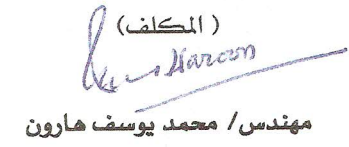 ( المكلف)
Haroon
مهندس/ محمد يوسف هارون